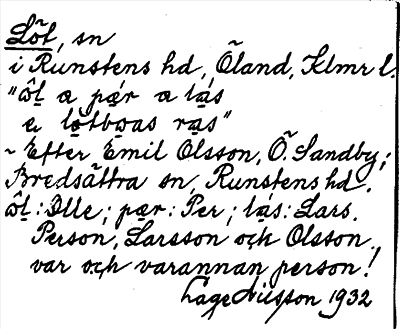 Löt, sn
i Runstens hd, Öland, Klmr l.
"ôl a pær a lás
a lötboas ras"
~ Efter Emil Olsson, Ö. Sandby,
Bredsättra sn, Runstens hd.
ôl: Olle; pær: Per; lás: Lars.
Person, Larsson och Olsson
var och varannan person!
Lage Nilsson 1932